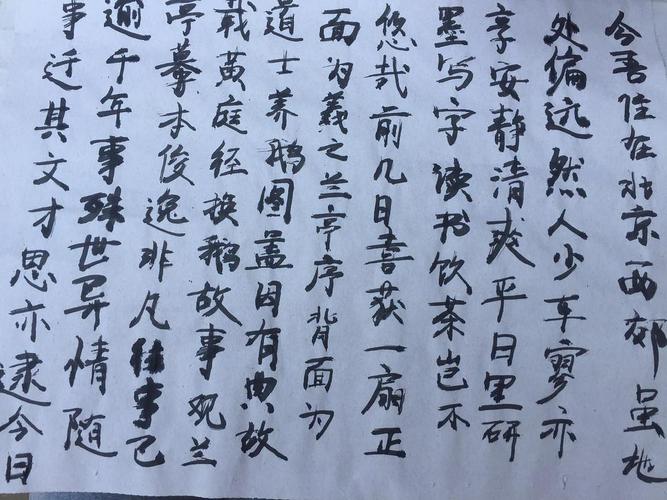 今吾住在北京西郊虽地
处偏远然人少车寥亦
享安静清爽平日里研
墨写字读书饮茶岂不
悠哉前几日喜获一扇正
面为羲之兰亭序背面为
道士养鹅图盖因有典故
载黄庭径换鹅故事观兰
亭摹本俊逸非凡往事已
逾千年事殊世异情随
事迁其文才思亦逮今日